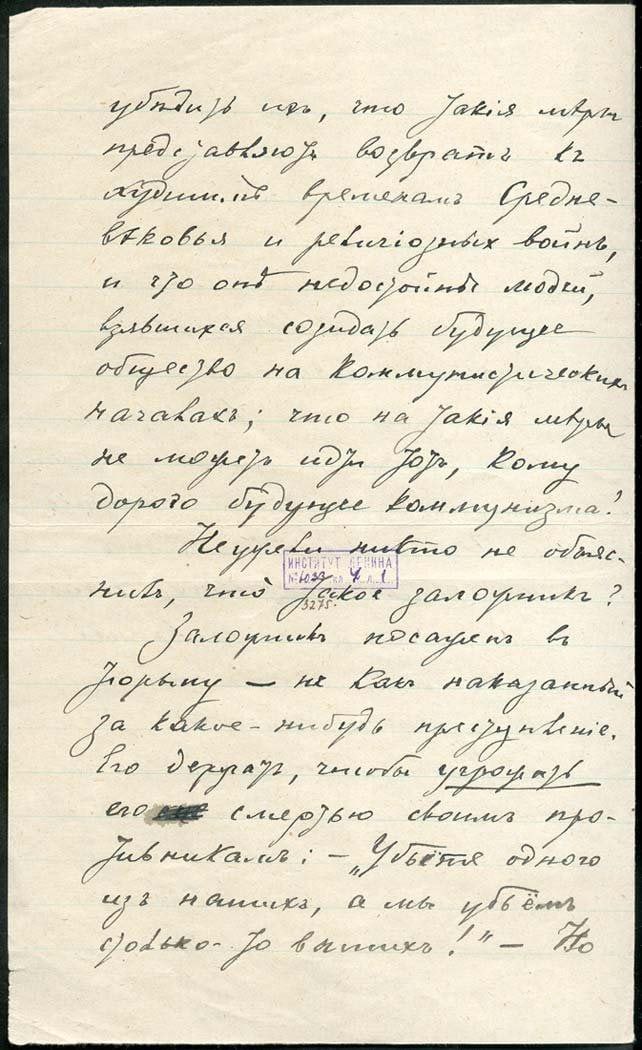 убѣдить ихъ, что такія мѣры
представляютъ возвратъ къ
худшимъ временамъ Средне-
вѣковья и религіозныхъ войнъ,
и что онѣ недостойны людей,
взявшихся созидать будущее
общество на коммунистическихъ
началахъ; что на такія мѣры
не можетъ идти тотъ, кому
дорого будущее коммунизма!
Неужели никто не объяс-
ИНСТИТУТ ЛЕНИНА
нилъ, что такое заложникъ?
3275.
Заложникъ посаженъ въ
тюрьму — не какъ наказанный
за какое-нибудь преступленіе.
Его держатъ, чтобы угрожать
его смертью своимъ про-
тивникамъ: — „Убьёте одного
изъ нашихъ, а мы убьёмъ
столько-то вашихъ!" — Но